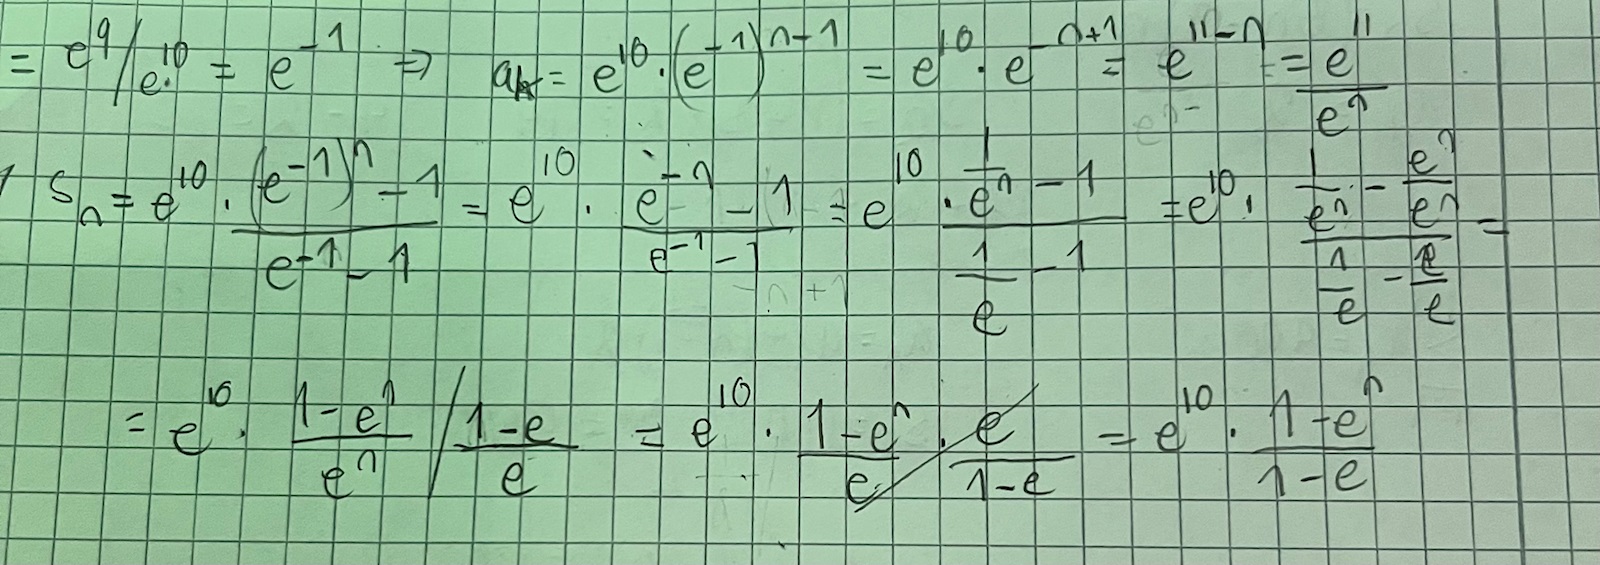 = e^9 / e^10 = e^-1 ⇒ a_n = e^10 · (e^-1)^n-1 = e^10 · e^-n+1 = e^11-n = e^11 / e^n
S_n = e^10 · ((e^-1)^n - 1) / (e^-1 - 1) = e^10 · (e^-n - 1) / (e^-1 - 1) = e^10 · (1/e^n - 1) / (1/e - 1) = e^10 · (1/e^n - e^n/e^n) / (1/e - e/e) =
= e^10 · (1-e^n)/e^n / (1-e)/e = e^10 · (1-e^n)/e · e/(1-e) = e^10 · (1-e^n)/(1-e)